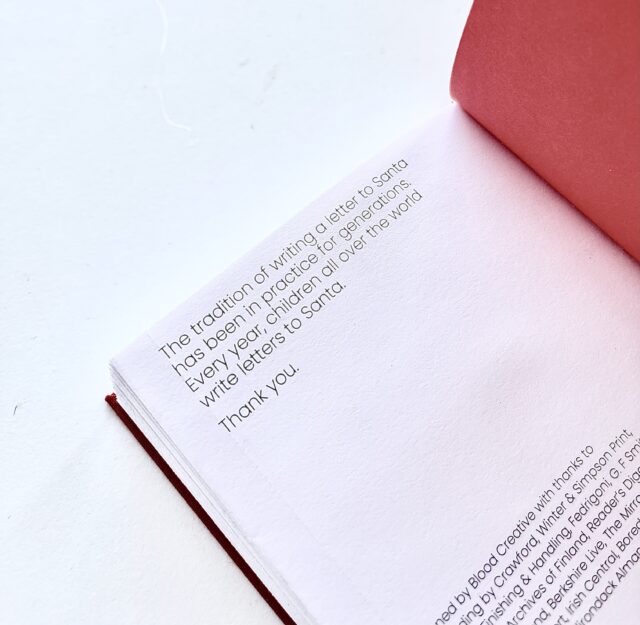 The tradition of writing a letter to Santa
has been in practice for generations.
Every year, children all over the world
write letters to Santa.
Thank you.
ned by Blood Creative with thanks to
ing by Crawford, Winter & Simpson Print,
Finishing & Handling, Fedrigoni, G. F Sm
Archives of Finland, Reader's Dig
nd, Berkshire Live, The Mirro
rt, Irish Central, Bore
irondack Alma